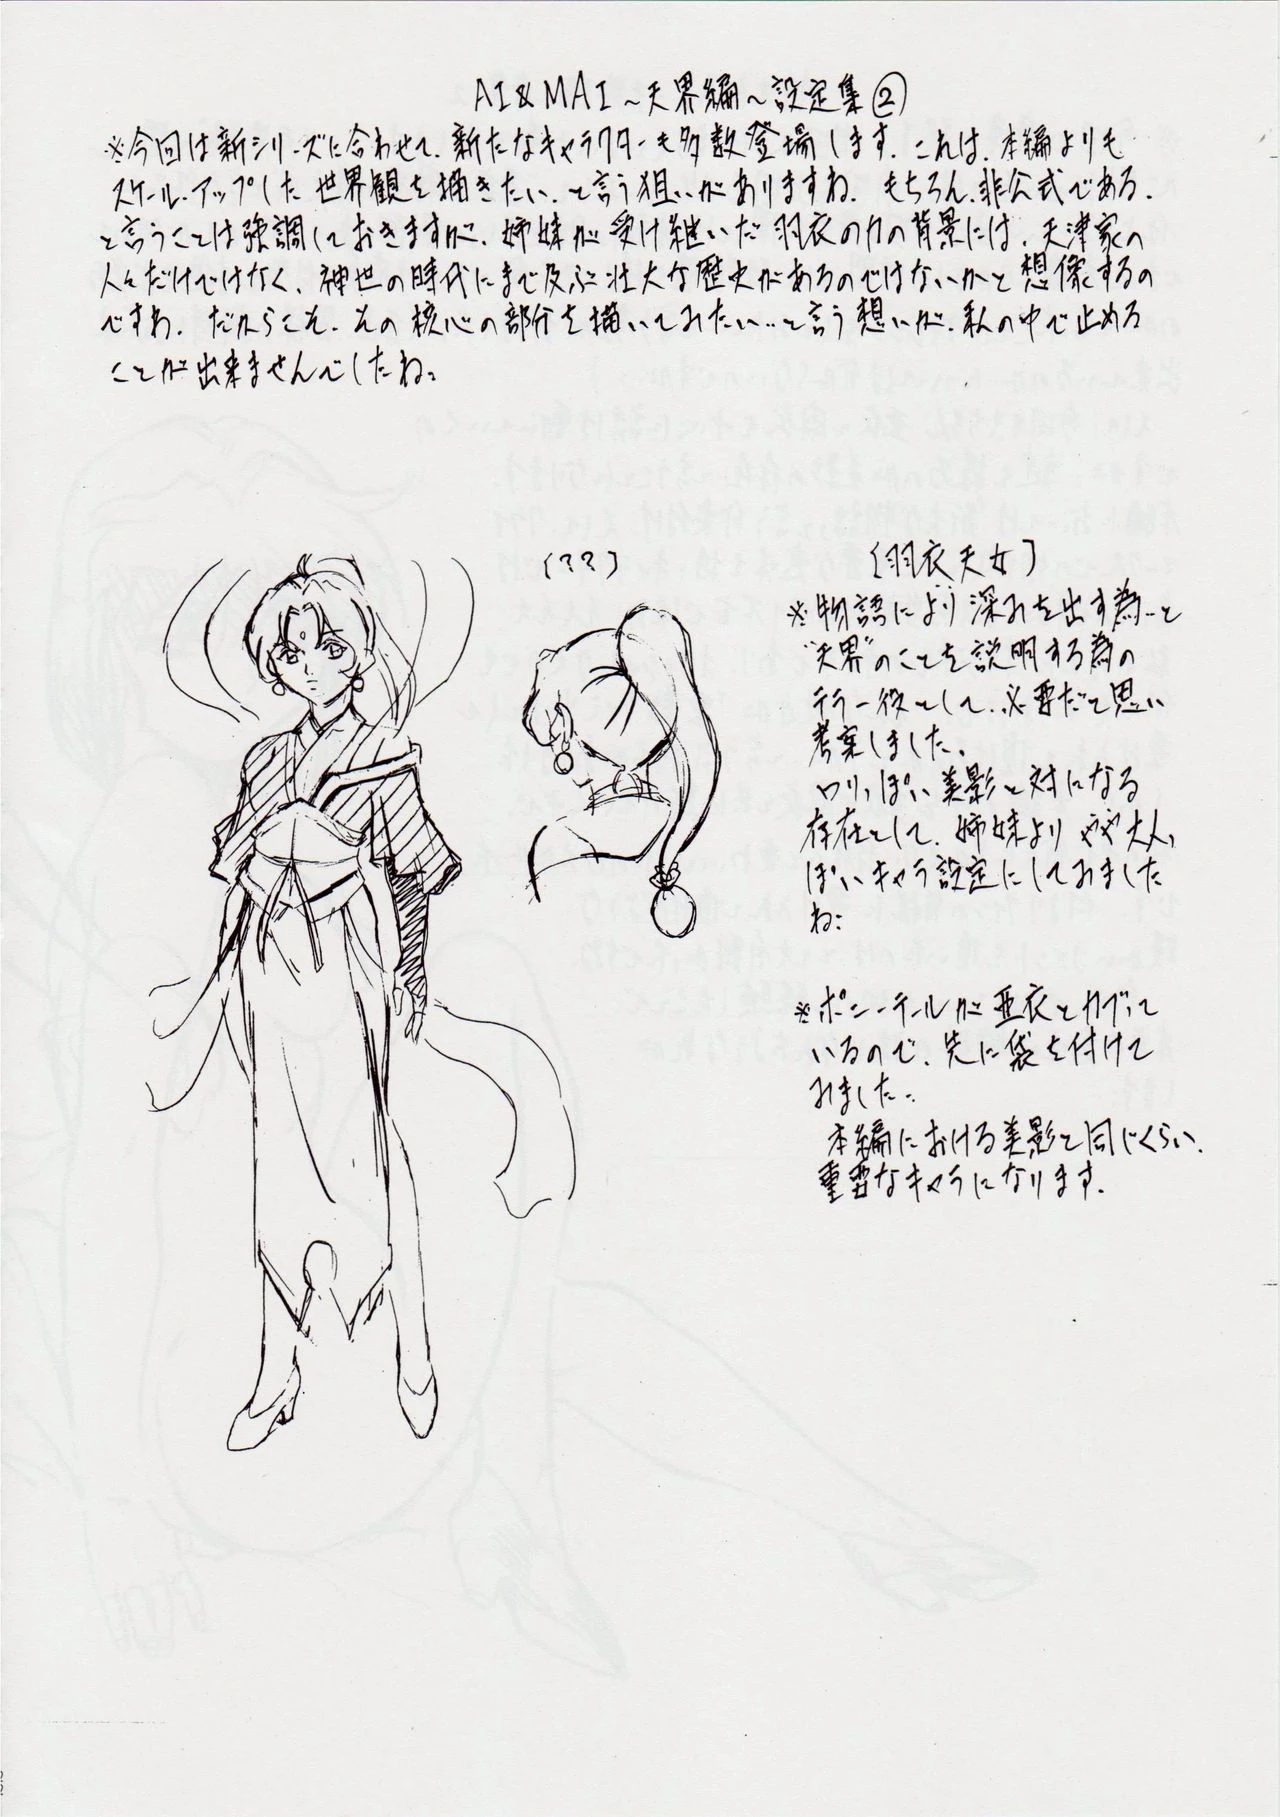 AI&MAI～天界編～設定集②
※今回は新シリーズに合わせて、新たなキャラクターも多数登場します。これは、本編よりも
スケール・アップした世界観を描きたい、と言う狙いがありますね。もちろん、非公式である、
と言うことは強調しておきますが、姉妹が受け継いだ羽衣の力の背景には、天津家の
人々だけではなく、神世の時代にまで及ぶ壮大な歴史があるのではないかと想像するの
ですわ。だからこそ、その核心の部分を描いてみたい…と言う想いが、私の中で止める
ことが出来ませんでしたね。
(??)
[羽衣天女]
※物語により深みを出す為…と
"天界"のことを説明する為の
テラー役として、必要だと思い
考案しました。
ロリっぽい美影と対になる
存在として、姉妹よりやや大人っ
ぽいキャラ設定にしてみました
ね。
※ポニーテールが亜衣とカブって
いるので、先に袋を付けて
みました…
本編における美影と同じくらい、
重要なキャラになります。